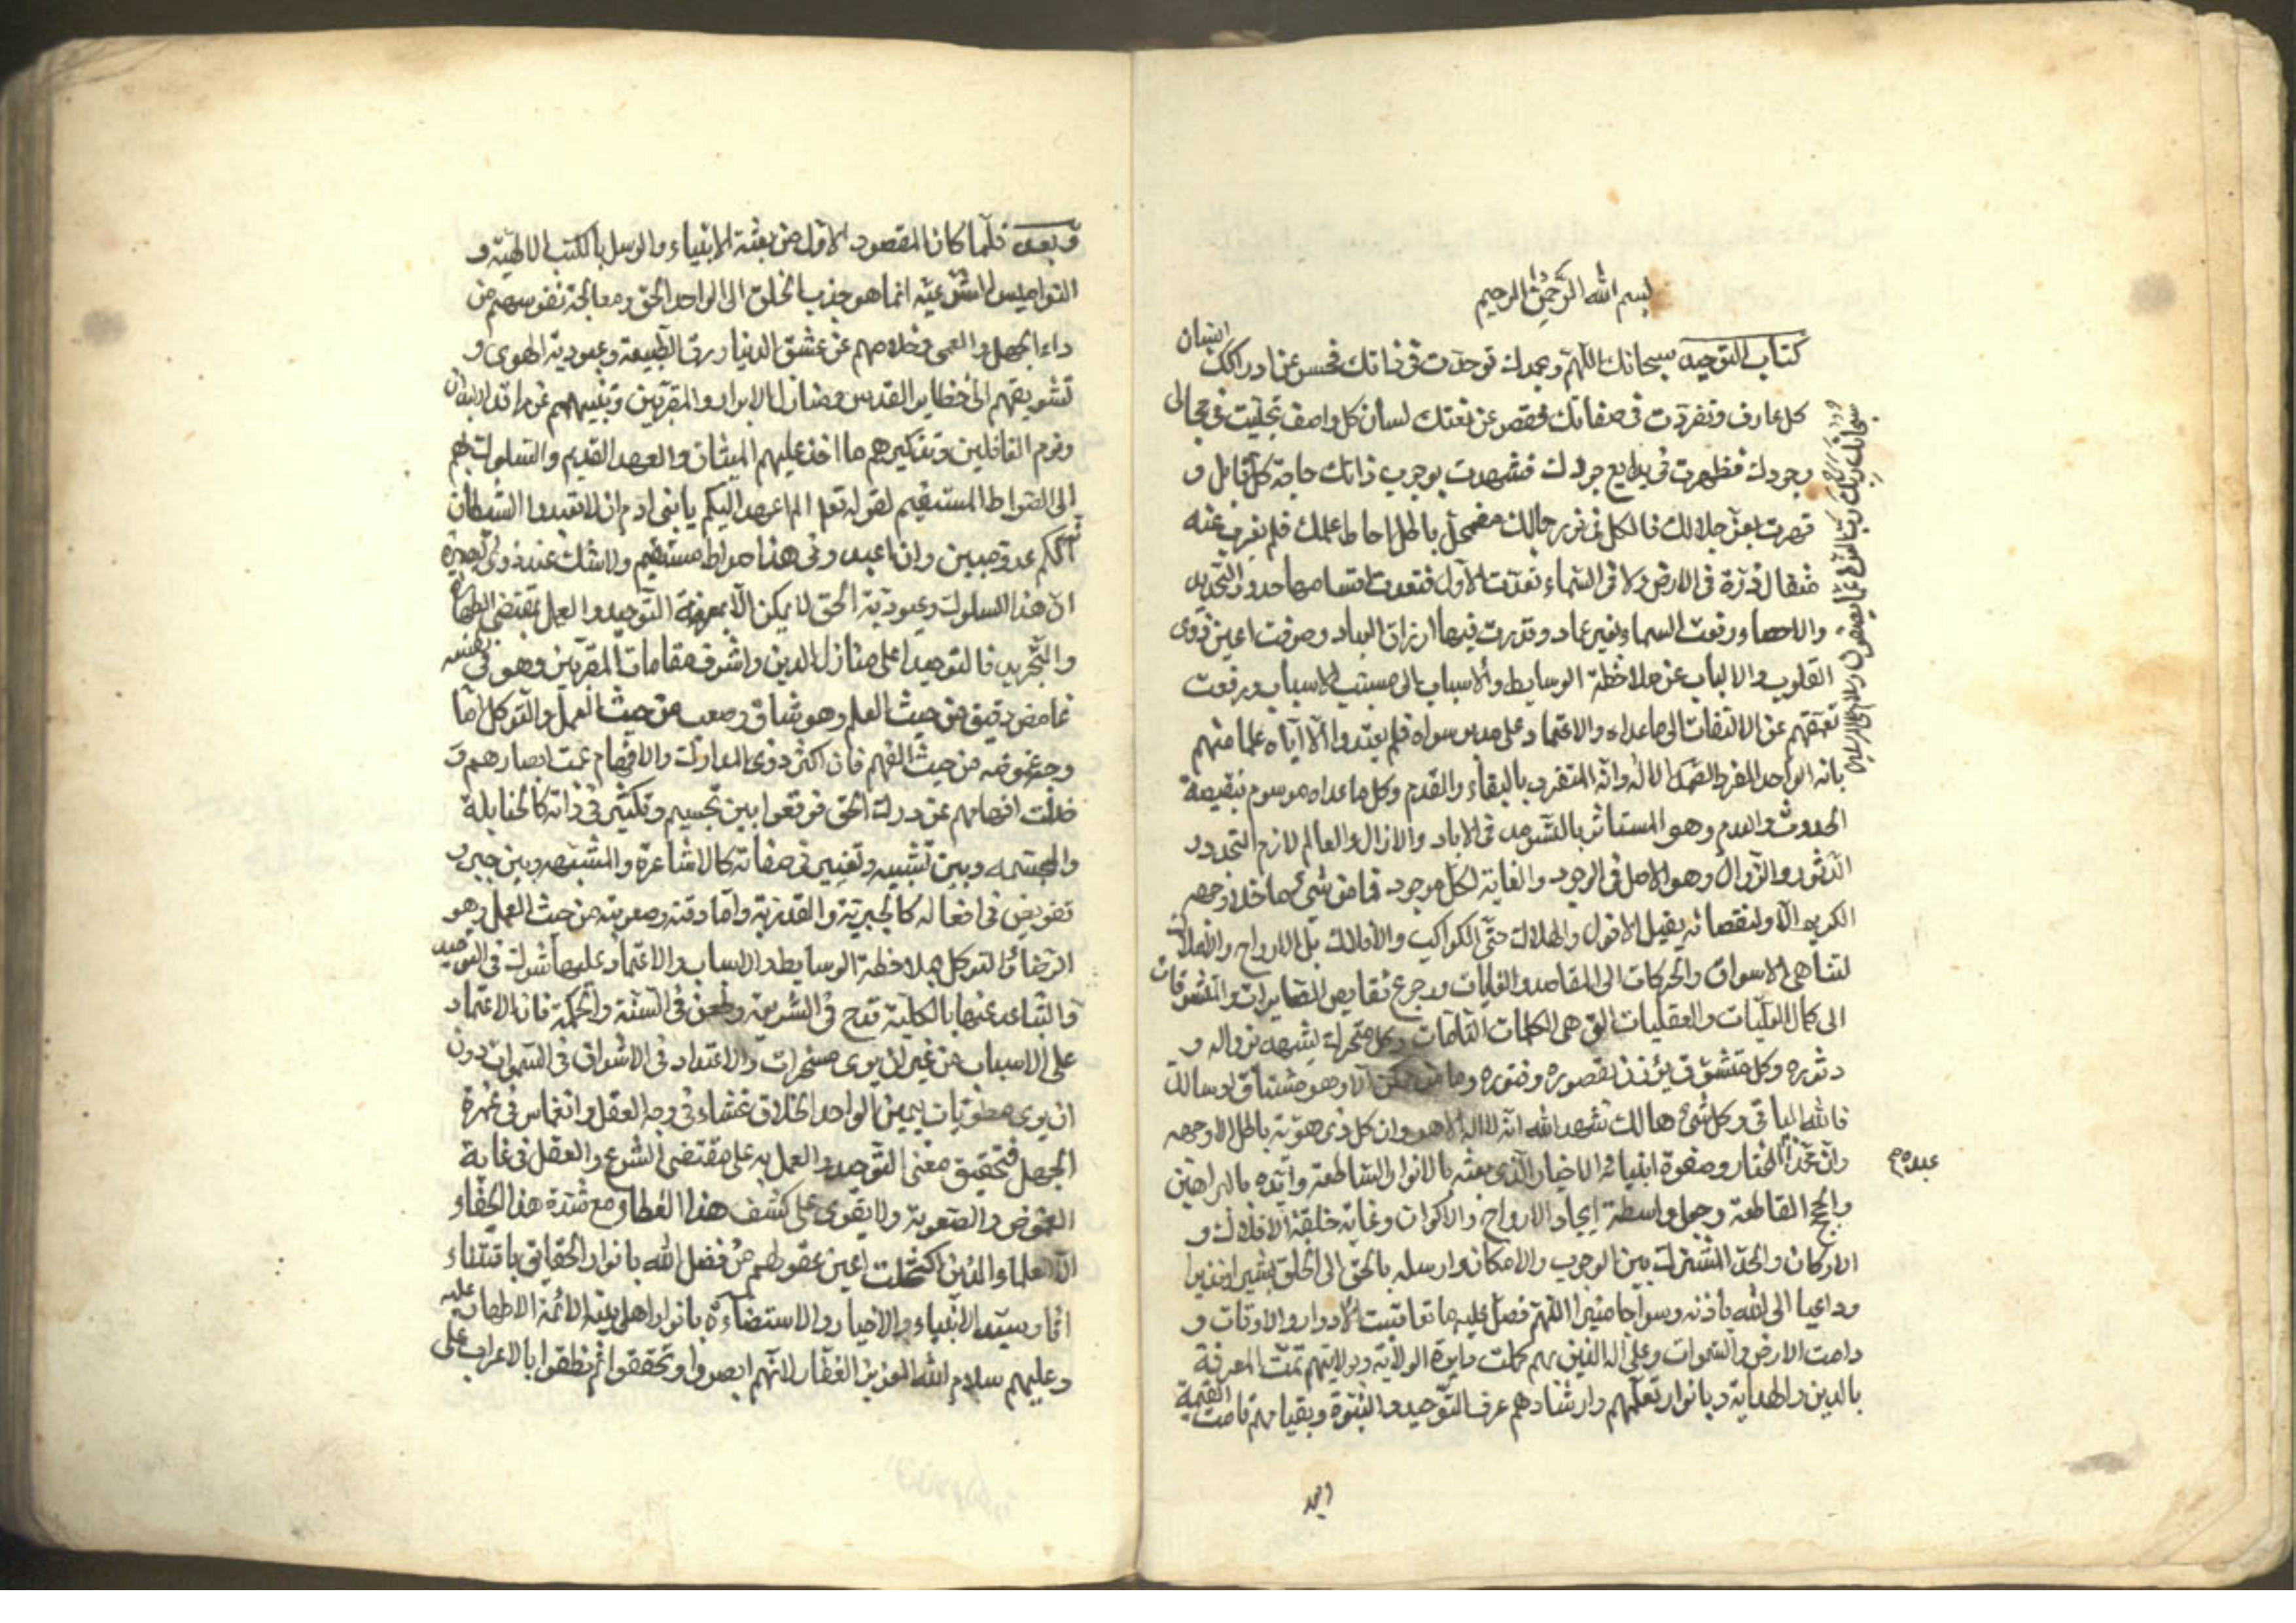 بسم الله الرحمن الرحيم
كتاب التوحيد سبحانك اللهم وبحمدك توحدت في ذاتك فحسر عن ادراكك انسان
كل عارف وتفردت في صفاتك فقصر عن نعتك لسان كل واصف تجليت في مجالى
وجودك فظهرت في بدايع جودك فشهدت بوجوب ذاتك حاجة كل قابل و
قهرت بعز جلالك فالكل في نور جمالك مضمحل باطل احاط علمك فلم يعزب عنه
مثقال ذرة في الارض ولا في السماء تعددت الاول فتعدت اقسامها حدود التحديد
والاحصاء ورفعت السماء بغير عماد وقدرت فيها ارزاق العباد وصرفت اعين ذوى
القلوب والالباب عن ملاحظة الوسايط والاسباب الى مسبب الاسباب ورفعت
عن الالتفات الى ما عداه والاعتماد على مدبر سواه فلم يعبدوا الا اياه علما منهم
بانه الواحد الفرد الصمد الاله وانه المتفرد بالبقاء والقدم وكل ما عداه موسوم بنقيصة
الحدوث والعدم وهو المستاثر بالتسرمد في الاباد والازال والعالم لازم التجدد و
الدثور والزوال وهو الاصل في الوجود والغاية لكل موجود فما من شئ ما خلا وجهه
الكريم الا ولنقصانه يقبل الافول والهلاك حتى الكواكب والافلاك بل الارواح والاملاك
لتناهى الاسواق والحركات الى المقاصد والغايات ورجوع نقايص
الى كمال والعقليات التي هي الكلمات التامات وكل متحرك يشهد بزواله و
دثوره وكل متشوق يؤذن بقصوره وفتوره وما من الا وهو مشتاق
فالله الباقي وكل شئ هالك نشهد الله انه لا اله الا هو وان كل ذى هوية باطل الا وجهه
وان محمدا عبده المختار وصفوة انبيائه الاخيار الذى بعثه بالانوار الساطعة وايده بالبراهين
والحجج القاطعة وجعل واسطة ايجاد الارواح والاكوان وغاية خلقة الافلاك و
الاركان والحد المشترك بين الوجوب والامكان وارسله بالحق الى الخلق بشيرا ونذيرا
وداعيا الى الله باذنه وسراجا منيرا اللهم فصل عليه ما تعاقبت الادوار والاوقات و
دامت الارض والسموات وعلى اله الذين بهم كملت دايرة الولاية وبولايتهم تمت المعرفة
بالدين والهداية وبانوار تعلمهم وارشادهم عرف التوحيد والنبوة وبقيامهم قامت القيمة
سبحانك ربك رب العزة عما يصفون وسلام على المرسلين
وبعد
وبعد فلما كان المقصود الاول من بعثة الانبياء والرسل بالكتب الالهية و
النواميس الشرعية انما هو جذب الخلق الى الواحد الحق ومعالجة نفوسهم من
داء الجهل والعمى وخلاصهم عن عشق الدنيا ورق الطبيعة وعبودية الهوى و
تشويقهم الى حظاير القدس ومنازل الابرار والمقربين وتنبيههم عن مراقد
ونوم الغافلين وتذكيرهم ما اخذ عليهم الميثاق والعهد القديم والسلوك بهم
الى الصراط المستقيم لقوله تعه الم اعهد اليكم يا بنى ادم ان لا تعبدوا الشيطان
انه لكم عدو مبين وان اعبدونى هذا صراط مستقيم ولا شك عند ذوى البصيرة
ان هذا السلوك وعبودية الحق لا يمكن الا بمعرفة التوحيد والعمل بمقتضى الطهارة
والتجريد فالتوحيد اعلى منازل الدين واشرف مقامات المقربين وهو في نفسه
غامض دقيق من حيث العلم وهو شاق وصعب من حيث العمل والتوكل اما
وجه غموضه من حيث الفهم فان اكثر ذوى المدارك والافهام عمت ابصارهم و
ضلت افهامهم عن درك الحق فوقعوا بين تجسيم وتكثير في ذاته كالحنابلة
والمجسمه وبين تشبيه وتغيير في صفاته كالاشاعرة والمشبهه وبين جبر و
تفويض في افعاله كالجبرية والقدرية واما دقته وصعوبته من حيث العمل وهو
الرضا والتوكل فملاحظة الوسايط والاسباب والاعتماد عليها شرك في التوحيد
والتباعد عنها بالكلية قدح في الشريعة وطعن في السنة والحكمة فان الاعتماد
على الاسباب من غير ان يرى مسخرات والاعتداد في الاشواق في السموات دون
ان يرى مطويات بيمين الواحد الخلاق غشاء في وجه العقل وانغماس في غمرة
الجهل فتحقيق معنى التوحيد والعمل به على مقتضى الشرع والعقل في غاية
الغموض والصعوبة ولا يقوى على كشف هذا الغطاء مع شدة هذا الخفاء
الا العلماء الذين اكتحلت اعين عقولهم من فضل الله بانوار الحقايق باقتناء
اثار سيد الانبياء والاخيار والاستضاءة بانوار اهل بيته الائمة الاطهار عليه
وعليهم سلام الله العزيز الغفار لانهم ابصروا وتحققوا ثم نطقوا بالاعراب على